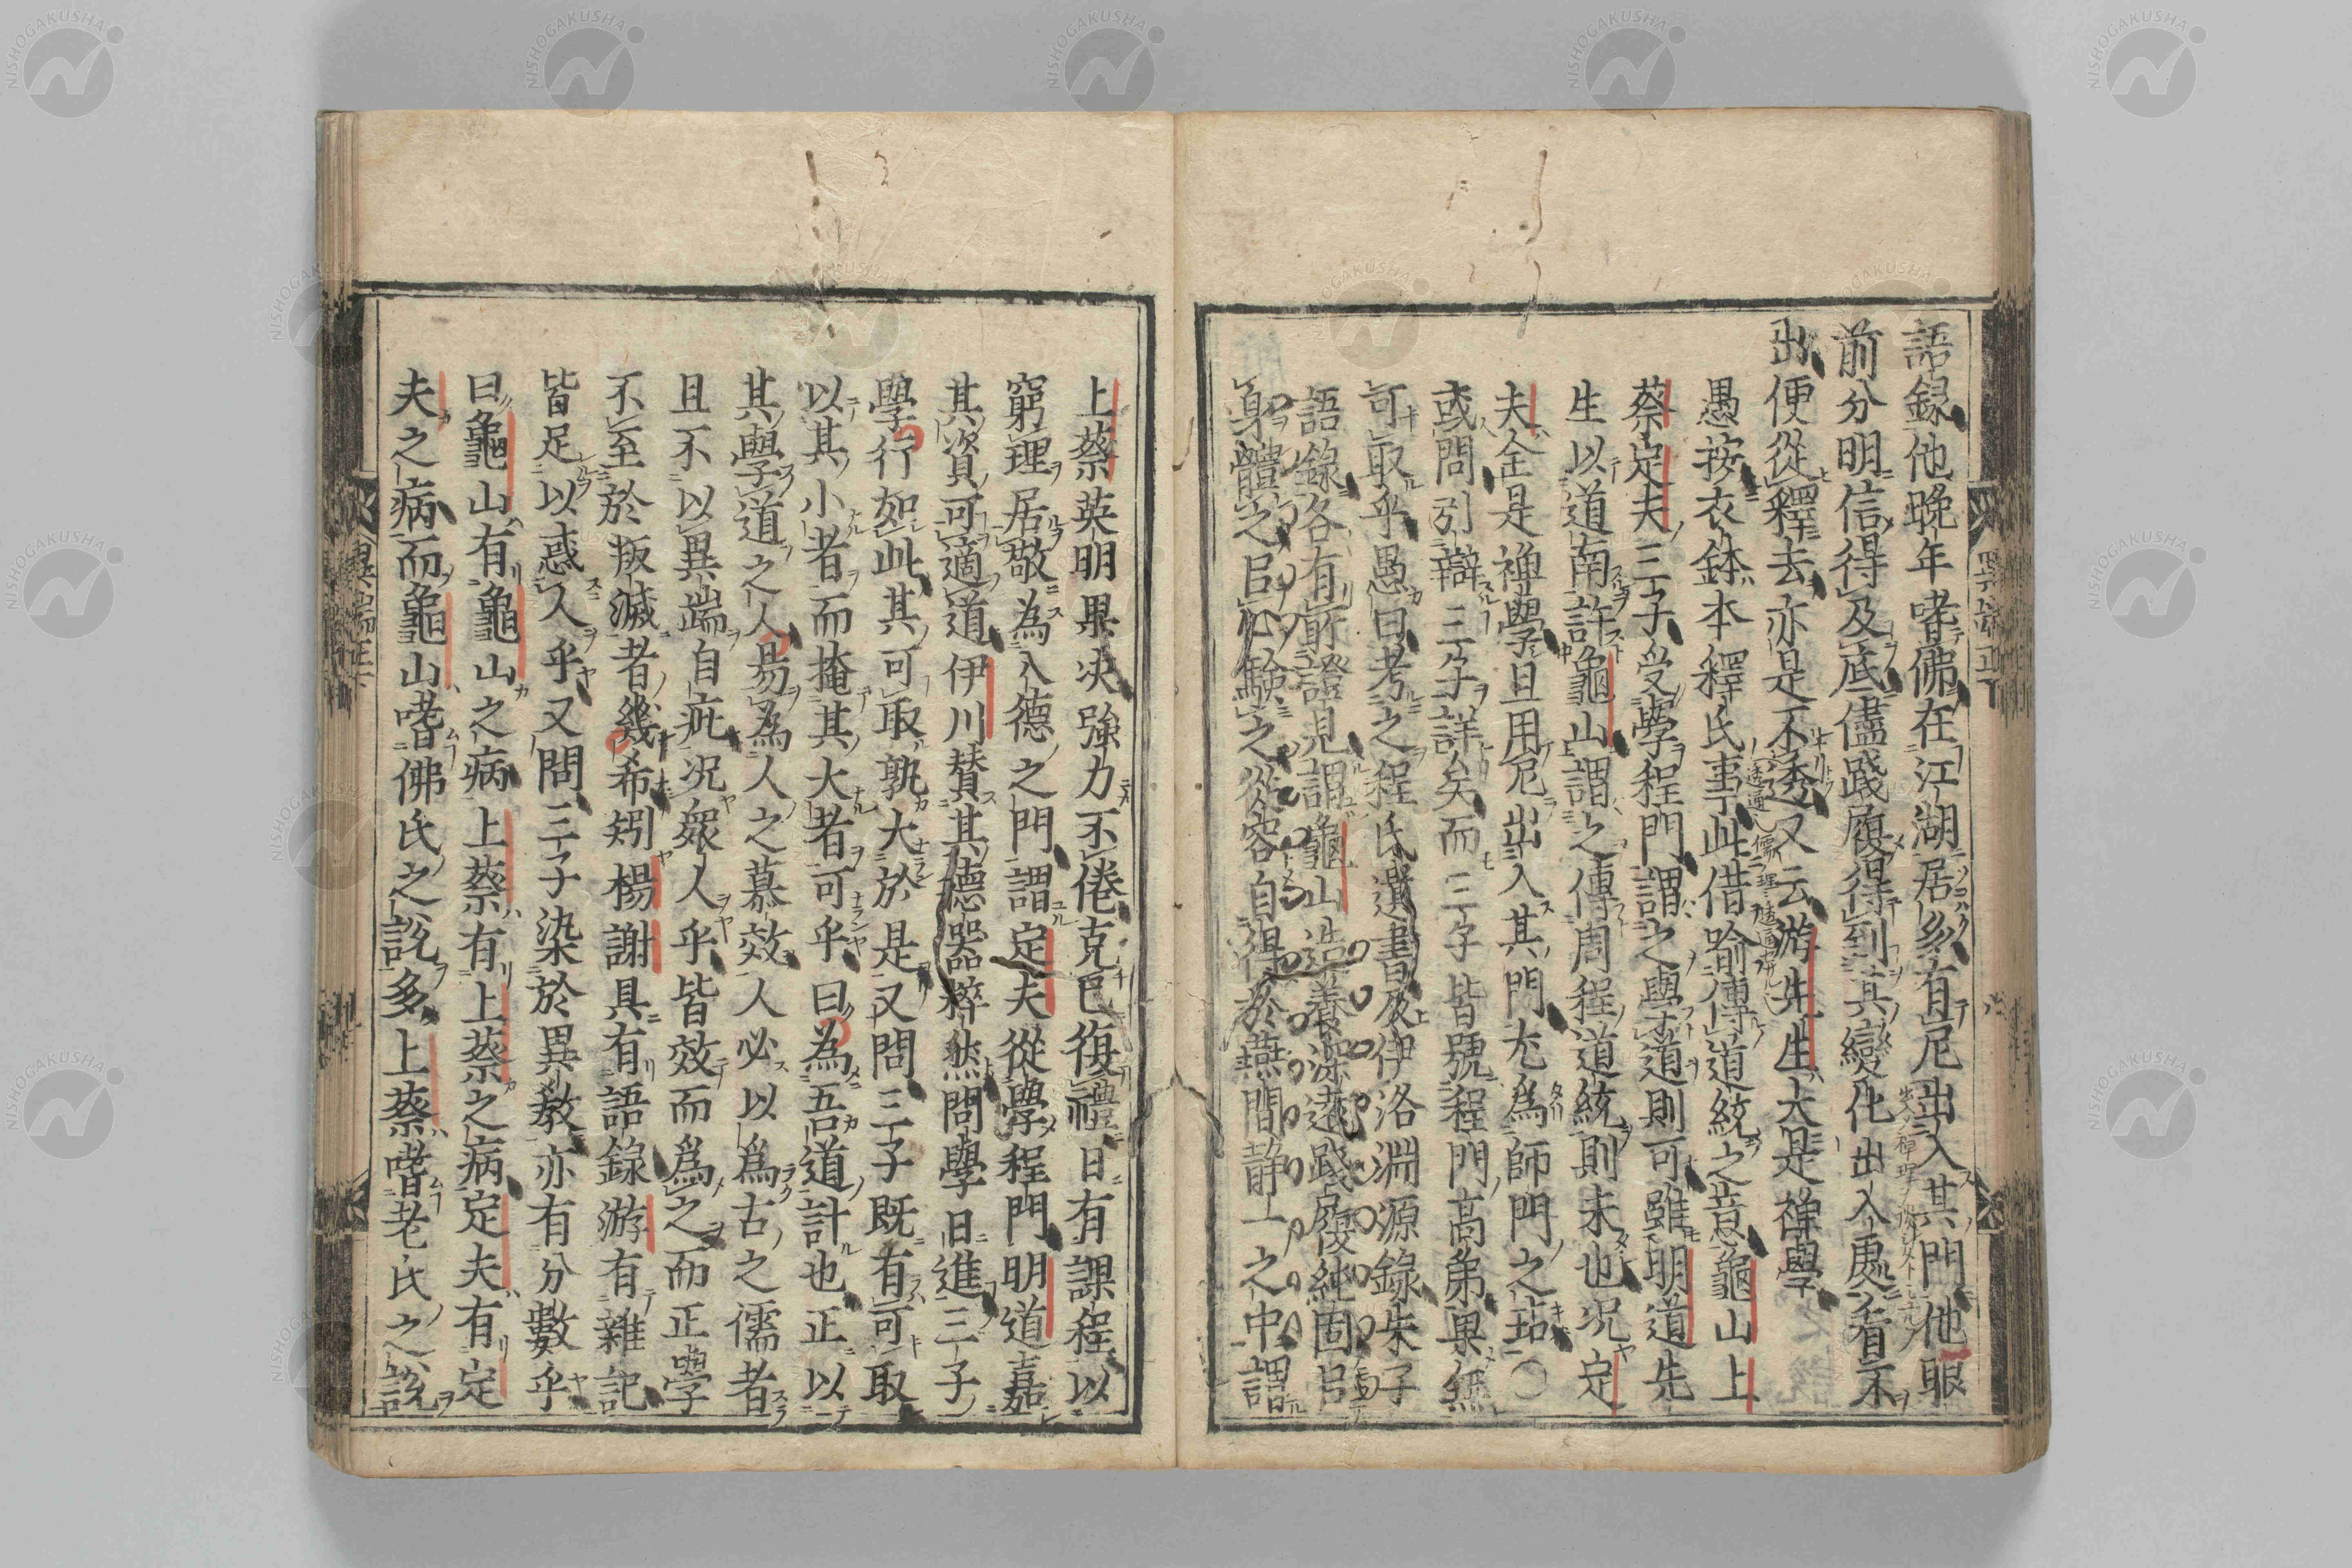 語録他晩年嗜佛在江湖居多有尼出入其門他眼
前分明信得及底儘踐履得到其變化出入處看不
出便從釋去亦是不透又云游先生大是禅學
愚按衣鉢本釋氏事此借喻傳道統之意龜山上
蔡定夫三子受學程門謂之學道則可雖明道先
生以道南許龜山謂之傳周程道統則未也况定
夫全是禅學且用尼出入其門尤為師門之玷〇
或問引辯三子詳矣而三子皆號程門高弟果無
可取乎愚曰考之程氏遺書及伊洛淵源録朱子
語録各有所證見謂龜山造養深遠踐履純固
身體之心驗之從容自得於燕間静一之中謂
上蔡英明果决強力不倦克己復禮日有課程以
窮理居敬為入德之門謂定夫從學程門明道嘉
其資可適道伊川賛其德器粹然問學日進三子
學行如此其可取孰大於是又問三子既有可取
以其小者而掩其大者可乎曰為吾道計也正以
其學道之人易為人之慕效人必以為古之儒者
且不以異端自疵况衆人乎皆效而為之而正學
不至於叛滅者幾希矧楊謝具有語録游有雜記
皆足以惑人乎又問三子染於異教亦有分數乎
曰龜山有龜山之病上蔡有上蔡之病定夫有定
夫之病而龜山嗜佛氏之説多上蔡嗜老氏之説
NISHOGAKUSHA